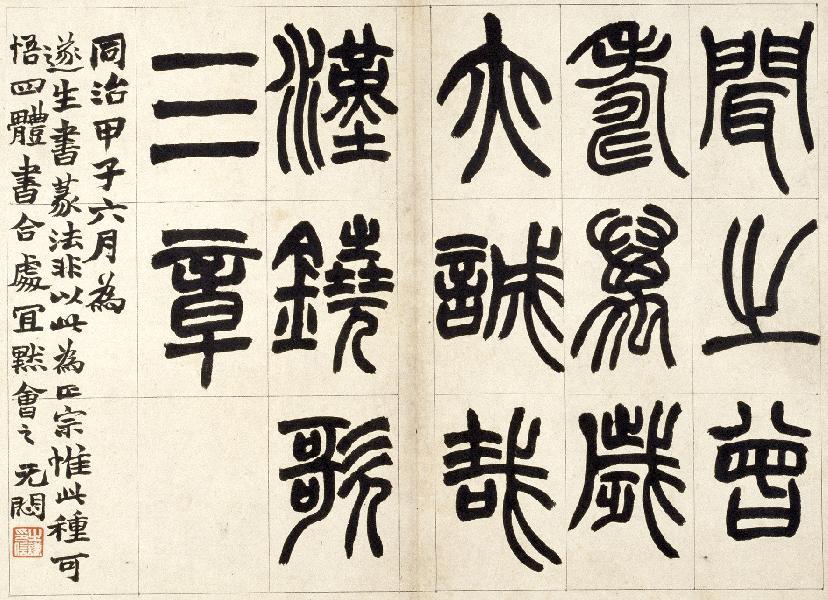 聞之曾
壽萬歲
亦誠哉
漢鐃歌
三章
同治甲子六月為
遂生書篆法非以此為正宗惟此種可
悟四體書合處冝默會之无悶